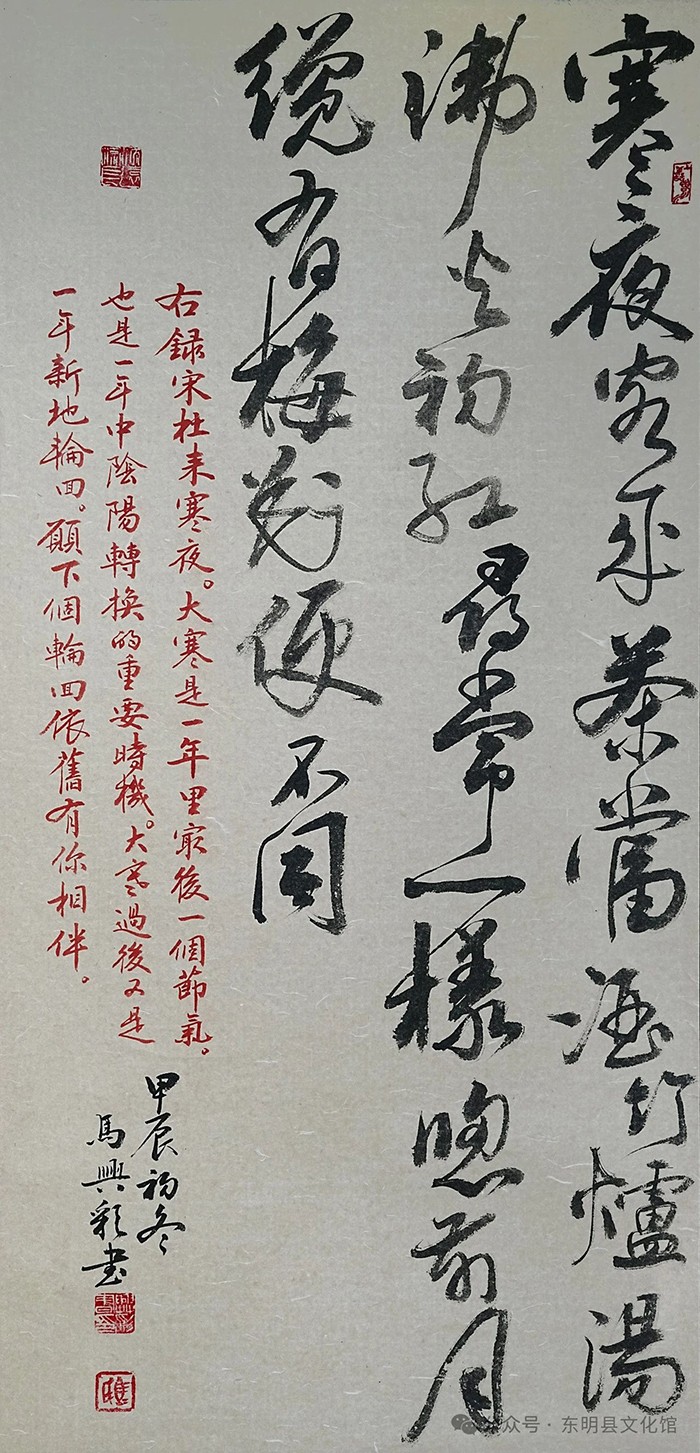 寒夜客来茶當酒竹爐湯
沸火初紅尋常一樣窗前月
纔有梅花便不同
右録宋杜耒寒夜。大寒是一年里最後一個節氣。
也是一年中陰陽轉换的重要時機。大寒過後又是
一年新地輪回。願下個輪回依舊有你相伴。
甲辰初冬
馬興彩书
公众号·东明县文化馆